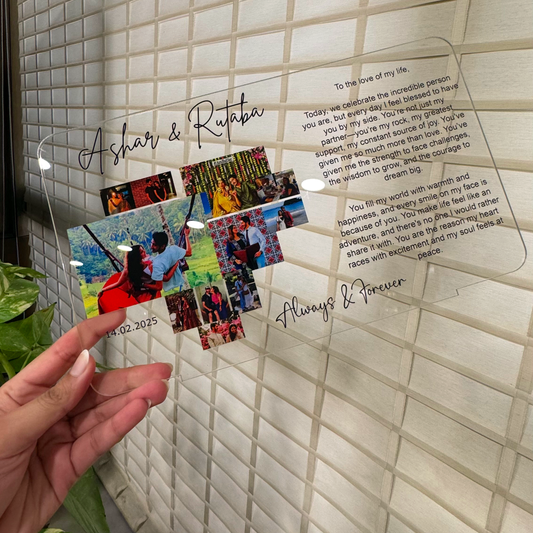 Ashar & Rutaba
14.02.2025
To the love of my life,
Today, we celebrate the incredible person
you are, but every day I feel blessed to have
you by my side. You're not just my
partner—you're my rock, my greatest
support, my constant source of joy. You've
given me so much more than love. You've
given me the strength to face challenges,
the wisdom to grow, and the courage to
dream big.
You fill my world with warmth and
happiness, and every smile on my face is
because of you. You make life feel like an
adventure, and there's no one I would rather
share it with. You are the reason my heart
races with excitement and my soul feels at
peace.
Always & Forever